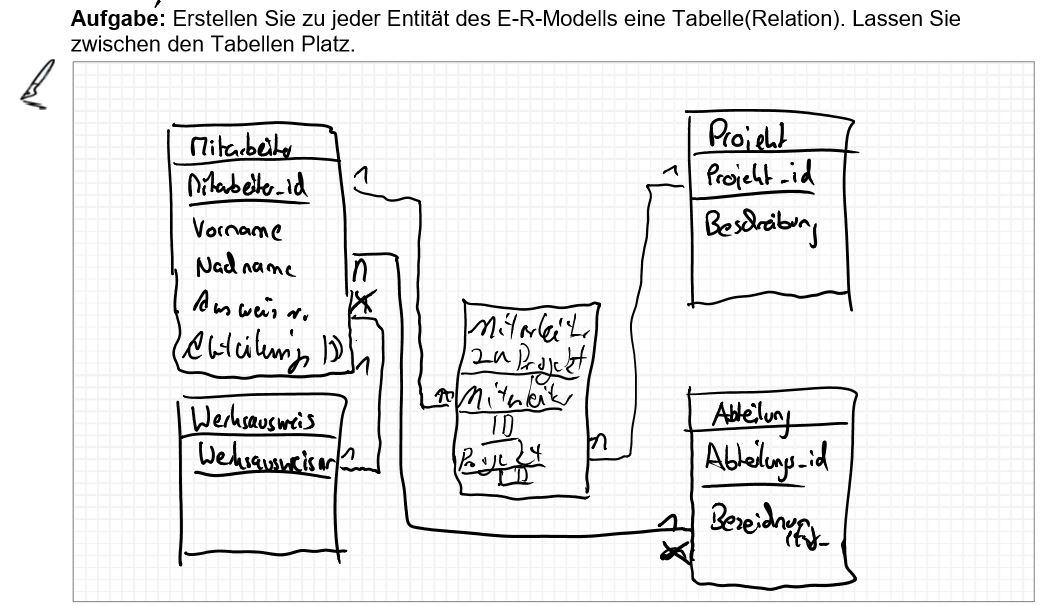 Aufgabe: Erstellen Sie zu jeder Entität des E-R-Modells eine Tabelle(Relation). Lassen Sie
zwischen den Tabellen Platz.
Mitarbeiter
Mitarbeiter_id
Vorname
Nachname
Ausweisnr.
Abteilung ID
1
n
1
Werksausweis
Werksausweisnr
1
Mitarbeiter
zu Projekt
Mitarbeiter
ID
Projekt
ID
n
n
Projekt
Projekt_id
Beschreibung
1
Abteilung
Abteilungs_id
Bezeichnung
1